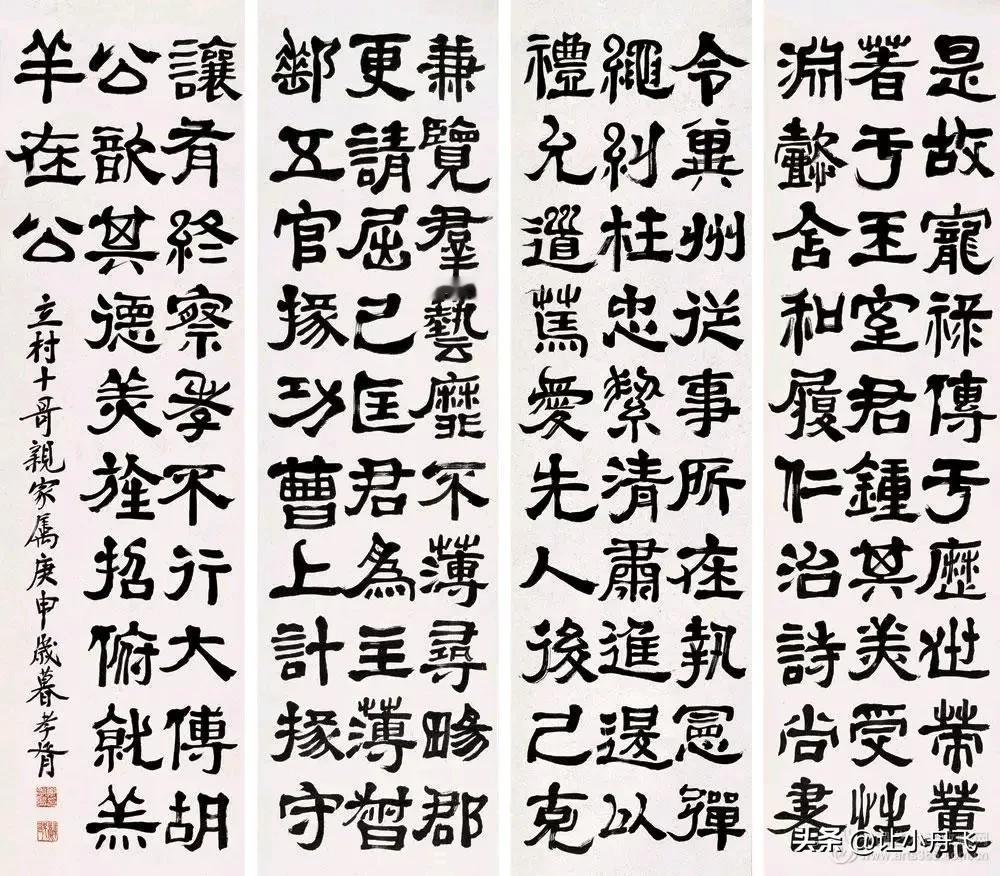 是故寵祿傳于歷世策薰
著于王室君鍾其美受性
淵懿含和履仁治詩尚書
令冀州從事所在執憲彈
繩糾枉忠絜清肅進退以
禮允道篤愛先人後己克
兼覽羣藝靡不薄尋畼郡
更請屈己匡君為主薄督
郵五官掾功曹上計掾守
讓有終察孝不行大傅胡
公歆其德美旌招俯就羔
羊在公
立村十哥親家属庚申歲暮孝胥
头条 @让小丹飞